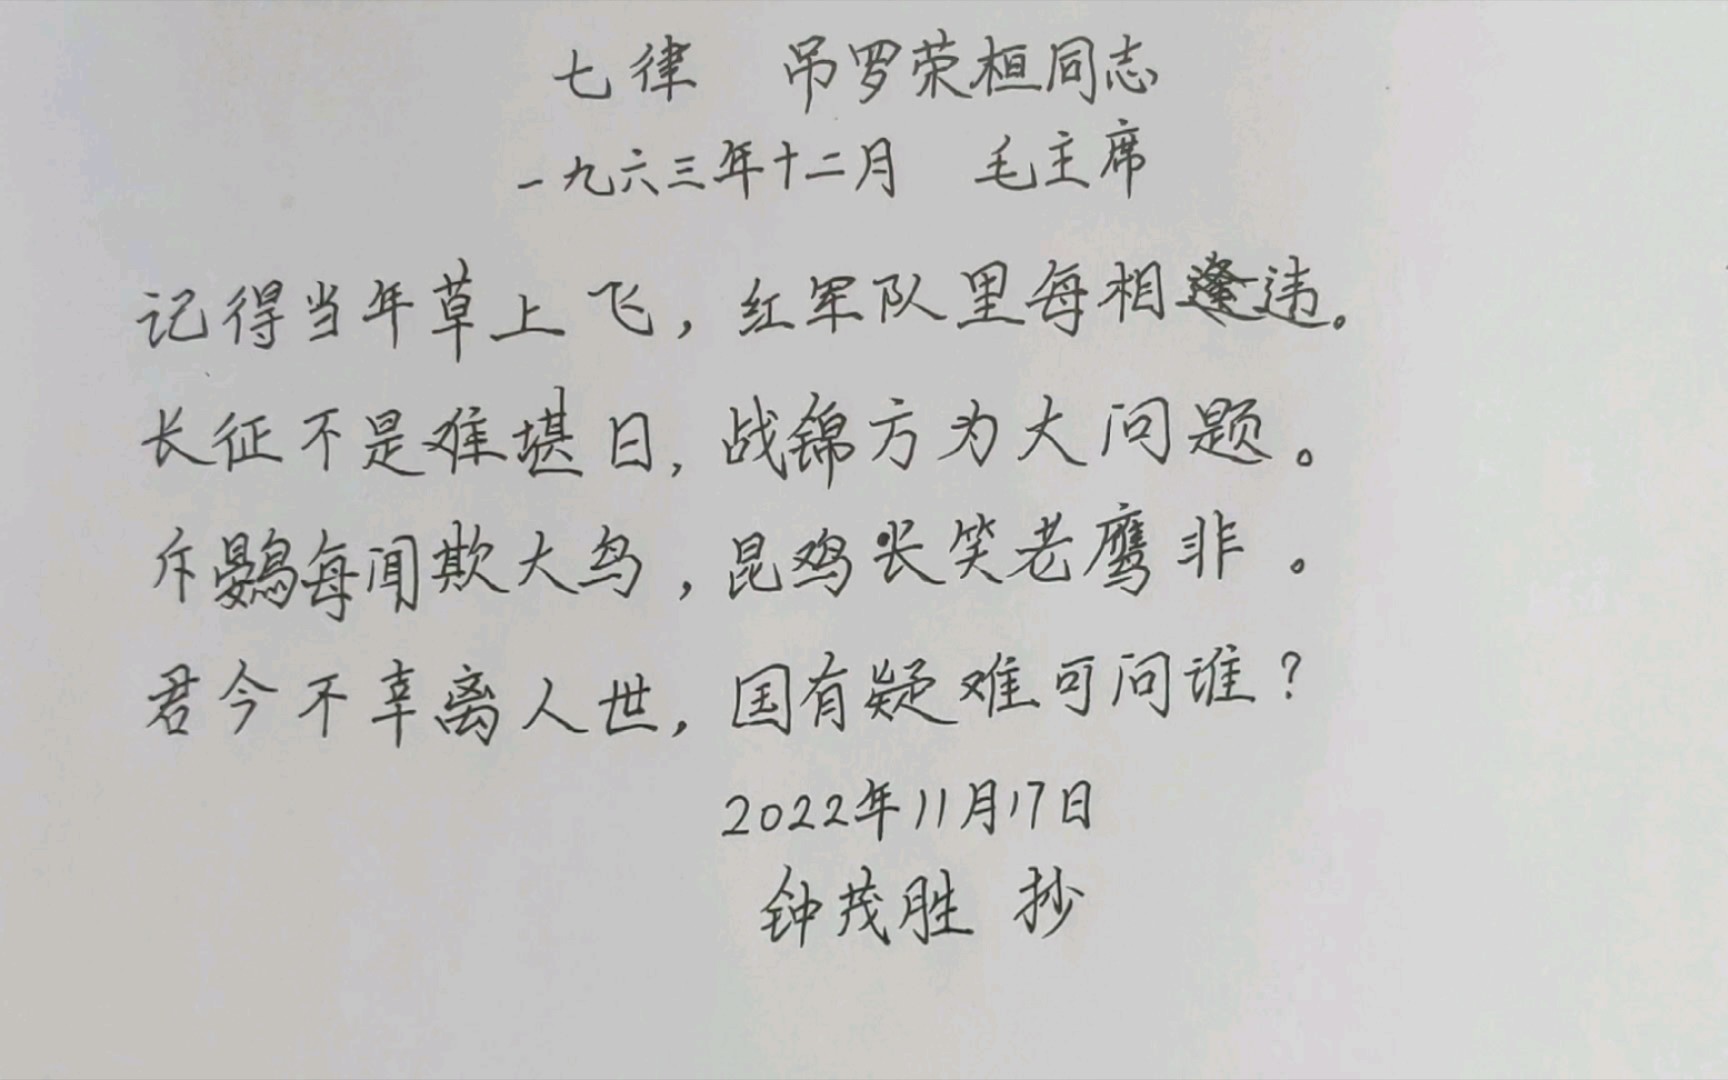 七律 吊罗荣桓同志
一九六三年十二月 毛主席
记得当年草上飞，红军队里每相违。
长征不是难堪日，战锦方为大问题。
斥鷃每闻欺大鸟，昆鸡长笑老鹰非。
君今不幸离人世，国有疑难可问谁？
2022年11月17日
钟茂胜 抄